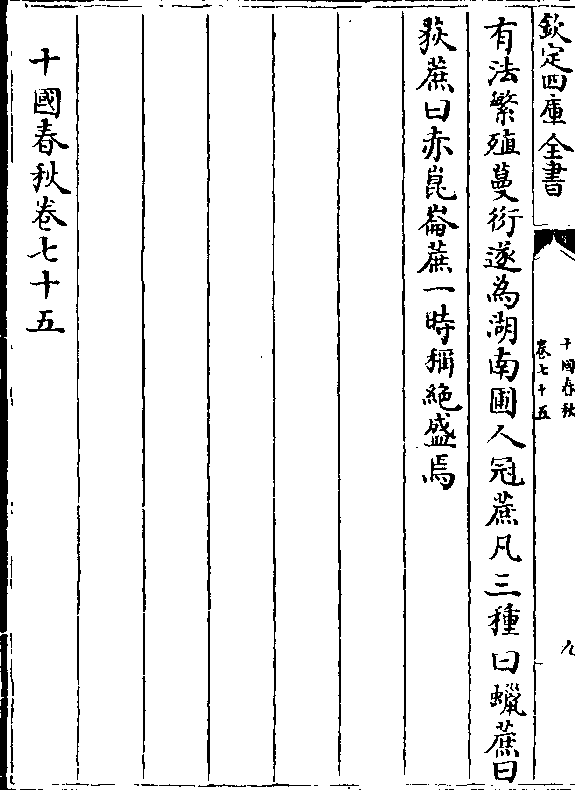 欽定四庫全書
十國春秋
卷七十五
九
有法繁殖蔓衍遂為湖南圃人冠蔗凡三種曰蠟蔗曰
荻蔗曰赤崑崙蔗一時稱絶盛焉
十國春秋卷七十五